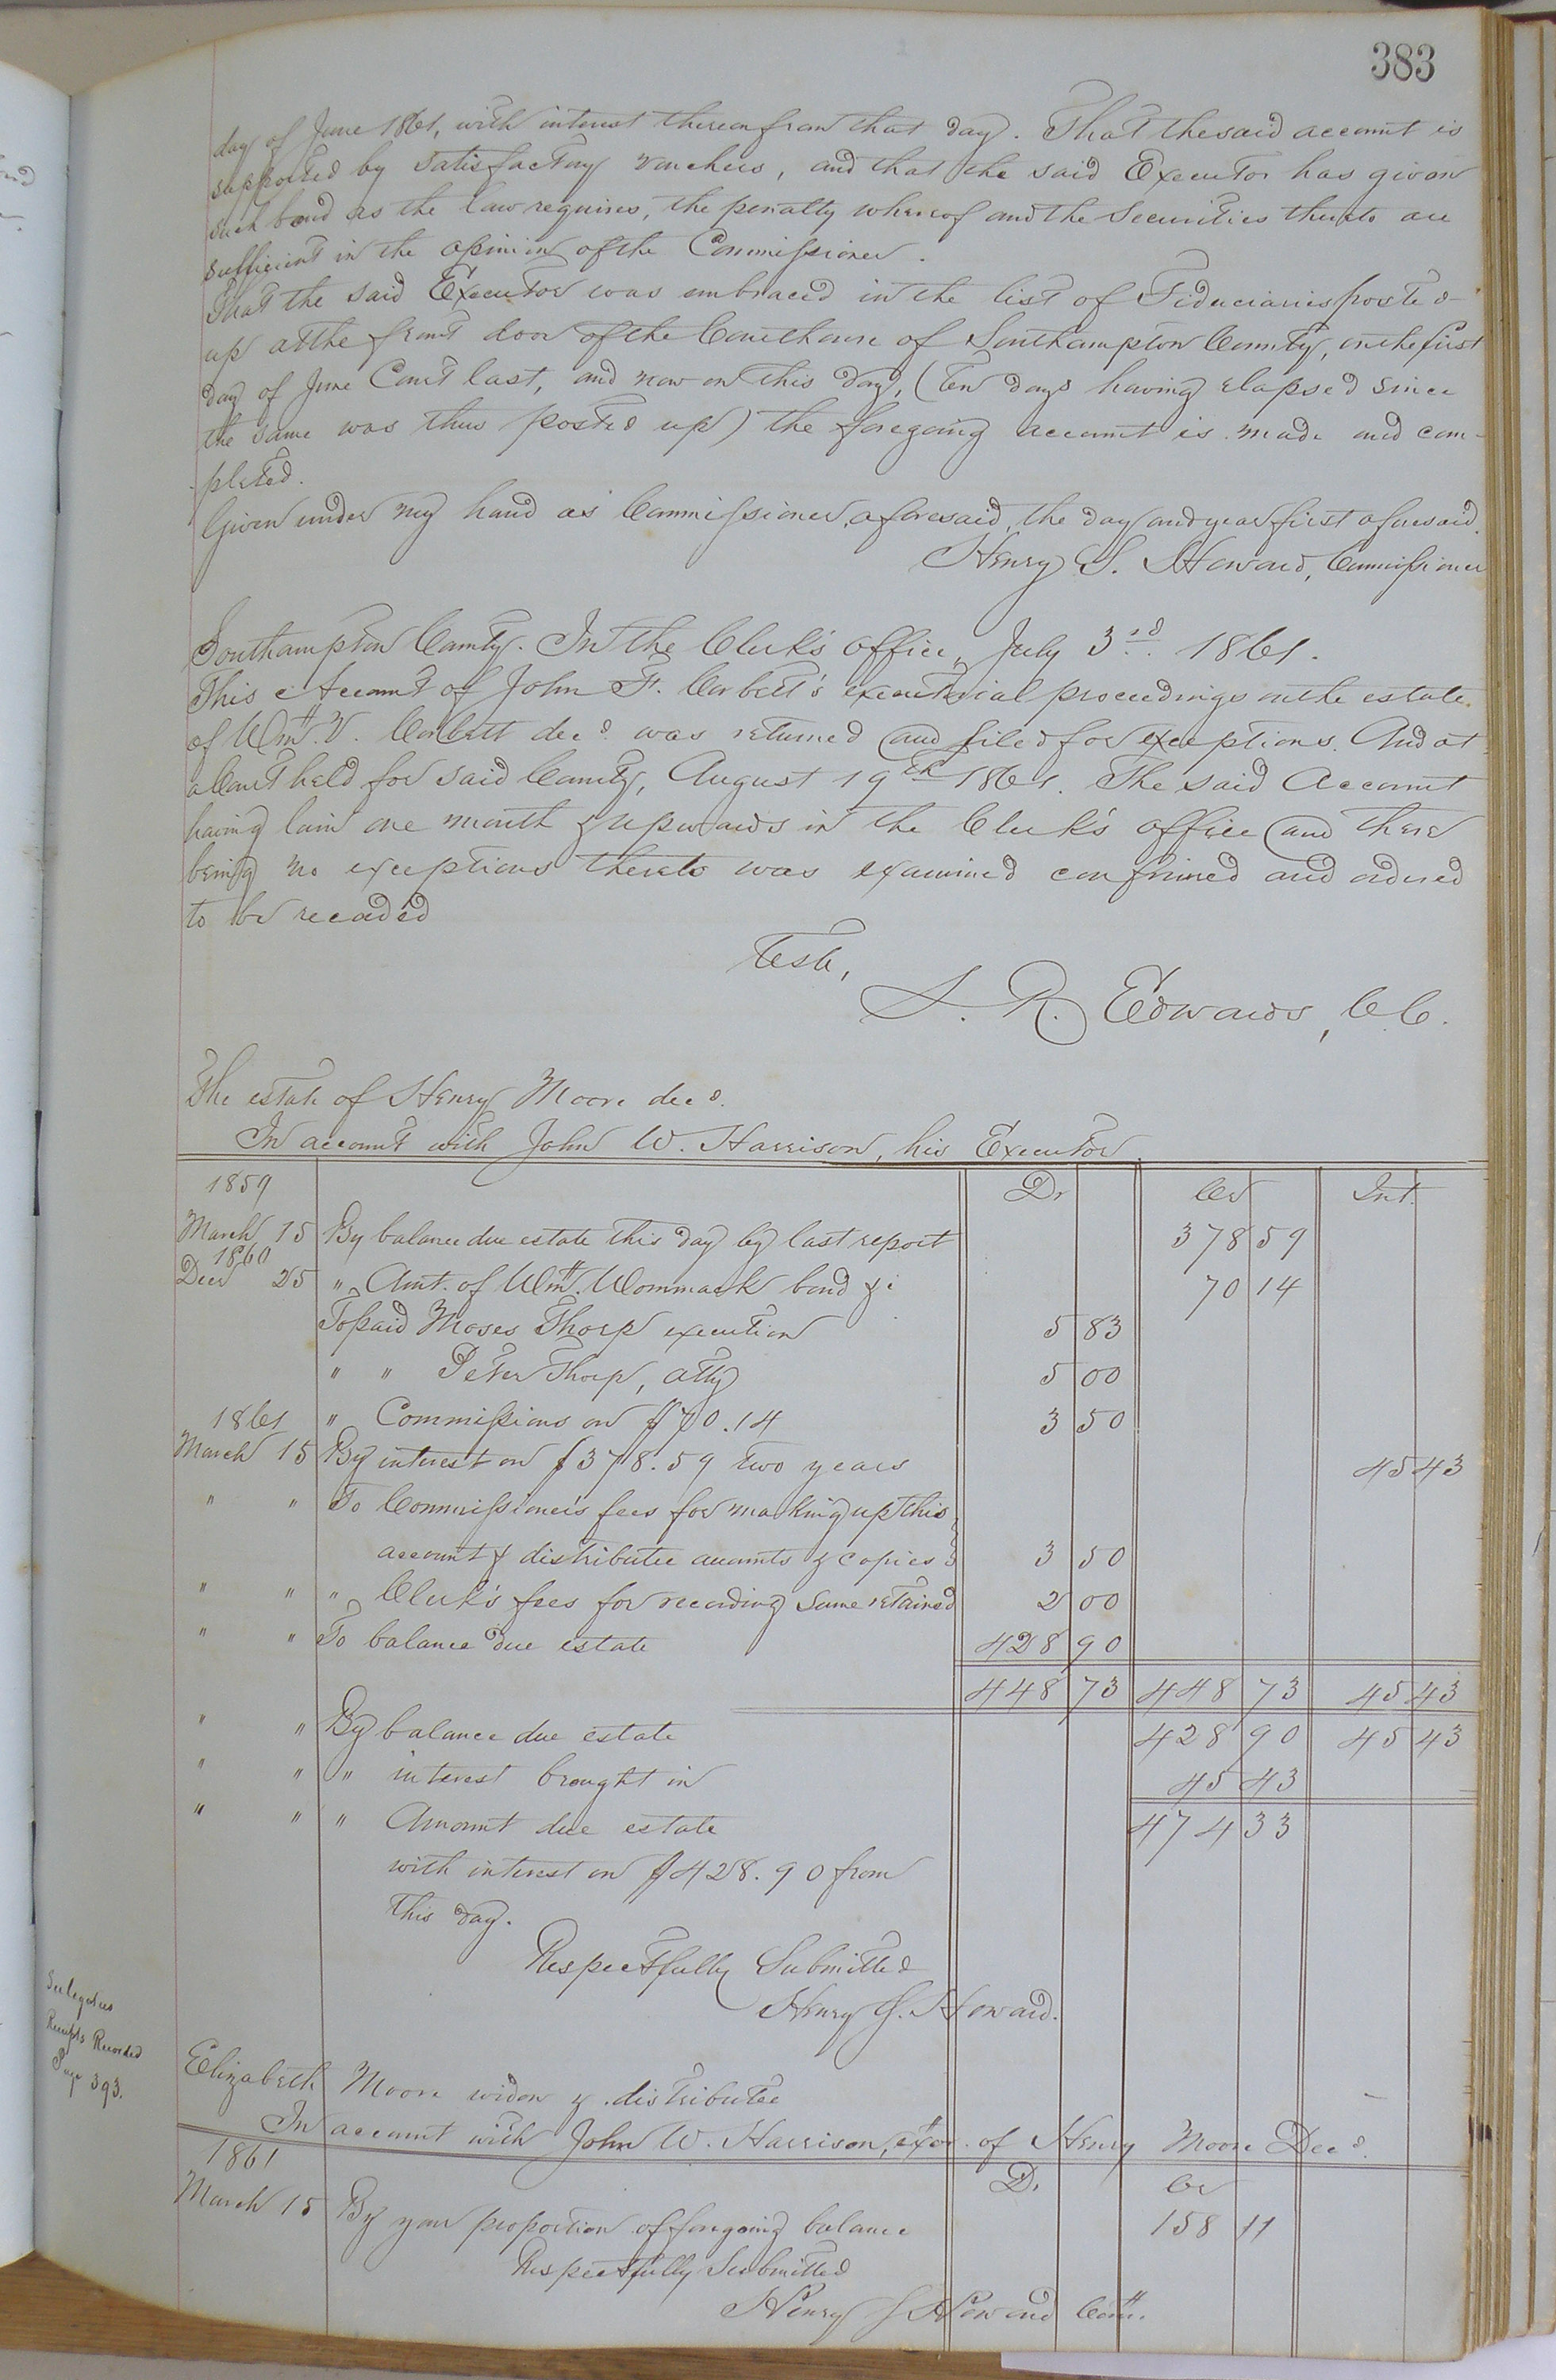 383
day of June 1861, with interest thereon from that day. That the said account is
supported by satisfactory vouchers, and that the said Executor has given
such bond as the law requires, the penalty whereof and the Securities thereto are
sufficient in the opinion of the Commissioner.
That the said Executor was embraced in the list of Fiduciaries posted
up at the front door of the Courthouse of Southampton County, on the first
day of June Court last, and now on this day, (ten days having elapsed since
the same was thus posted up) the foregoing account is made and com-
pleted.
Given under my hand as Commissioner aforesaid, the day and year first aforesaid.
Henry S. Howard, Commissioner
Southampton County. In the Clerk's office, July 3rd. 1861.
This Account of John F. Corbett's executorial proceedings on the estate
of Wm. V. Corbett decd. was returned and filed for exceptions. And at
a Court held for said County, August 19th 1861. The said Account
having lain one month & upwards in the Clerk's office and there
being no exceptions thereto was examined confirmed and ordered
to be recorded
Teste,
L. R. Edwards, C.C.
The estate of Henry Moore decd.
In account with John W. Harrison, his Executor
1859 Dr Cr Int.
March 15 By balance due estate this day by last report 378 59
1860
Decr 25 " Amt. of Wm. Wommack bond &c 70 14
To paid Moses Tharp execution 5 83
" " Peter Tharp, atty 5 00
1861 " Commissions on $70.14 3 50
March 15 By interest on $378.59 two years 45 43
" " To Commissioner's fees for making up this
account & distributee accounts & copies 3 50
" " " Clerk's fees for recording same retained 2 00
" " To balance due estate 428 90
448 73 448 73 45 43
" " By balance due estate 428 90 45 43
" " " interest brought in 45 43
" " " Amount due estate 474 33
with interest on $428.90 from
this day.
Respectfully Submitted
Henry S. Howard.
See legatees
Receipts Recorded
Page 393.
Elizabeth Moore widow & distributee
In account with John W. Harrison, exor. of Henry Moore Decd.
1861 Dr Cr
March 15 By your proportion of foregoing balance 158 11
Respectfully Submitted
Henry S Howard Com.